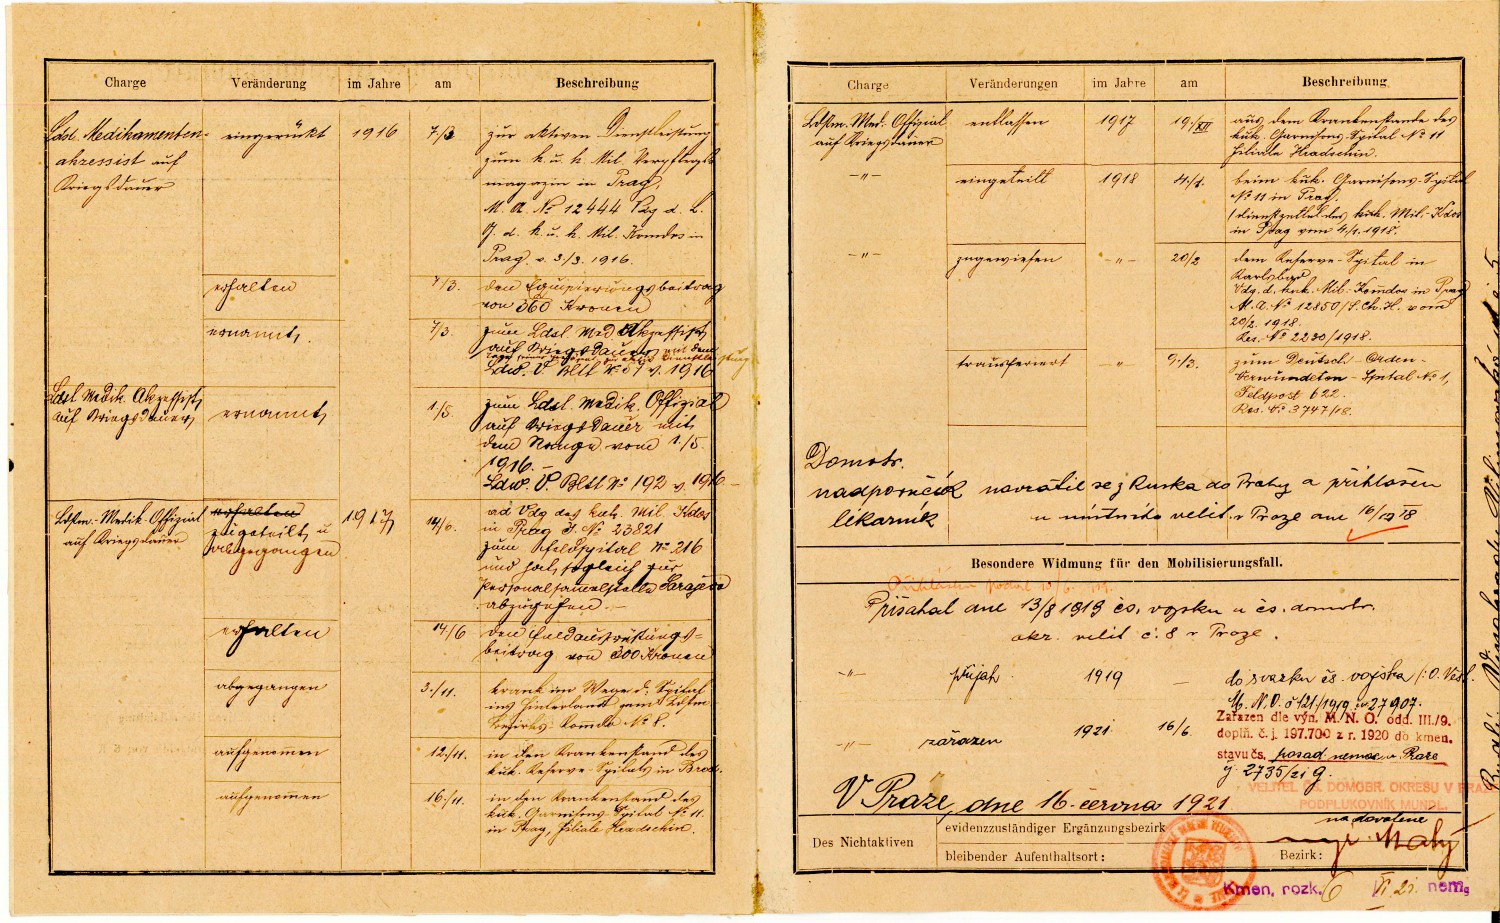 Charge Veränderung im Jahre am Beschreibung
Ldst. Medikamenten- eingerückt 1916 7/3 zur aktiven Dienstleistung
akzessist auf zum k. u. k. Mil. Verpflegs
Kriegsdauer magazin in Prag.
M. A. No 12444
d. k. u. k. Mil. Komdos in
Prag. v. 3/3. 1916.
erhalten 7/3. den Equipierungsbeitrag
von 360 Kronen
ernannt, 7/3. zum Ldst. Med Akzessist
auf Kriegsdauer mit dem
Ldw. V. Bltt No 57 v. 1916
Ldst. Medik. Akzessist ernannt, 1./5. zum Ldst. Medik. Offizial
auf Kriegsdauer auf Kriegsdauer mit
dem Range vom 1./5.
1916. –
Ldw. V. Bltt No 192 v. 1916 –
Ldstm.-Medik-Offizial erhalten 1917 14/6. ad Vdg des kuk. Mil. Kdos
auf Kriegsdauer zugeteilt u. in Prag No 23821
abgegangen zum Feldspital No 216
und hat sogleich zur
Personalsammelstelle Sarajevo
abzugehen. –
erhalten 14./6 den Feldausrüstungs=
beitrag von 300 Kronen
abgegangen 3./11. krank im Wege d. Spital
ins Hinterland zum Ldstm.
Bezirks Komdo No 8.
aufgenommen 12./11. in den Krankenstand des
kuk. Reserve-Spitals in Brod.
aufgenommen 16./11. in den Krankenstand des
kuk. Garnisons-Spital No 11.
in Prag, Filiale Hradschin.
Charge Veränderungen im Jahre am Beschreibung
Ldstm. Med. Offizial entlassen 1917 19./XII aus dem Krankenstande des
auf Kriegsdauer kuk. Garnisons-Spital No 11
Filiale Hradschin.
–"– eingeteilt 1918 4./1. beim kuk. Garnisons-Spital
No 11 in Prag.
/Dienstzettel des kuk. Mil.-Kdos
in Prag vom 4./1. 1918.
–"– zugewiesen –"– 20/2 dem Reserve-Spital in
Karlsbad
Vdg. d. kuk. Mil. Komdos in Prag
M. A. No 12850/S.Ch.H. vom
20/2. 1918.
Res. No 2230/1918.
transferiert –"– 9./3. zum Deutsch-Orden-
Verwundeten-Spital No 1,
Feldpost 622.
Res. No 3747/18.
Domobr.
nadporučík navrátil se z Ruska do Prahy a přihlášen
lékárník u místního velit. v Praze dne 16/12 18
Besondere Widmung für den Mobilisierungsfall.
Přísahal dne 13/8 1919 čs. vojsku u čs. domobr.
okr. velit č. 8 v Praze.
–"– přijat 1919 – do svazku čs. vojska /: O. Věst.
M. N. O. č 121/1919 27907.
–"– zařazen 1921. 16/6. Zařazen dle výn. M. N. O. odd. III./9.
doplň. č. j. 197.700 z r. 1920 do kmen.
stavu čs. posád. nemoc. v Praze
čj 2735/21 g.
V Praze, dne 16. června 1921
VELITEL ČS. DOMOBR. OKRESU V PRAZE
PODPLUKOVNÍK MUNDL.
na dovolené
Des Nichtaktiven evidenzzuständiger Ergänzungsbezirk mjr. Malý
bleibender Aufenthaltsort: Bezirk:
Kmen. rozk. 6 VI. 21. nem.